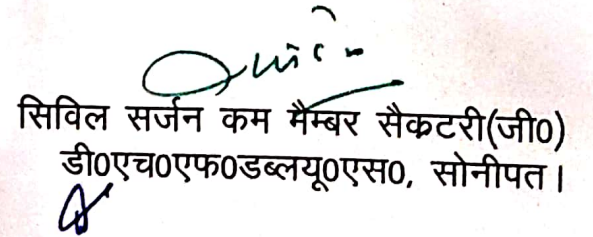 सिविल सर्जन कम मैम्बर सैकटरी(जी0)
डी0एच0एफ0डब्लयू0एस0, सोनीपत।